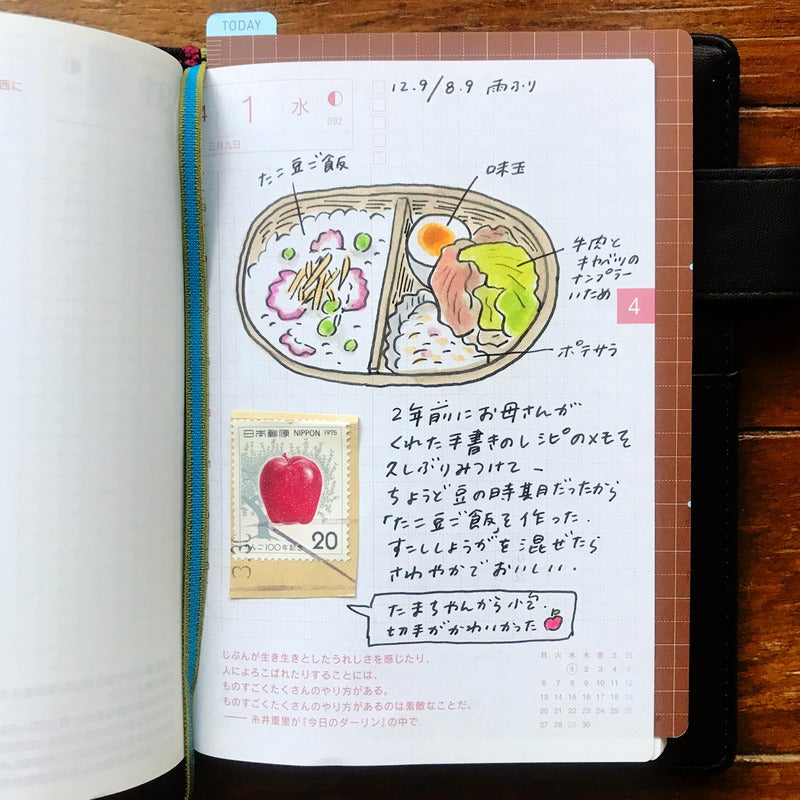 TODAY
4
1 水
092
三月九日
12.9/8.9 雨ふり
たこ豆ご飯
味玉
牛肉と
キャベツの
ナンプラー
いため
4
ポテサラ
2年前にお母さんが
くれた手書きのレシピのメモを
久しぶりみつけてー
ちょうど豆の時期だったから
「たこ豆ご飯」を作った.
すこししょうがを混ぜたら
さわやかでおいしい.
日本郵便 NIPPON 1975
んご100年記念
20
3.30
たまちゃんから小包.
切手がかわいかった
じぶんが生き生きとしたうれしさを感じたり、
人によろこばれたりすることには、
ものすごくたくさんのやり方がある。
ものすごくたくさんのやり方があるのは素敵なことだ。
—— 糸井重里が『今日のダーリン』の中で
月 火 水 木 金 土 日
1 2 3 4 5
6 7 8 9 10 11 12
13 14 15 16 17 18 19
20 21 22 23 24 25 26
27 28 29 30